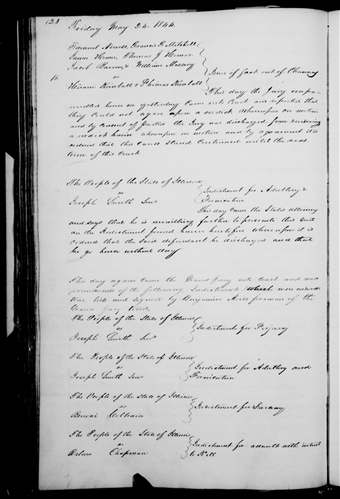 128
Friday May 24. 1844.
Vincent Francis H. Mitchell,
Thomas J.
& William Massey
vs Issue of fact out of Chancery
Hiram Kimball & Phineas Kimball
This day the Jury empan-
nelled herein on yesterday Came into Court and reported that
they Could not agree upon a verdict. Whereupon on motion
and by Consent of parties the Jury was discharged from rendering
a verdict herein whereupon on motion and by agreement it is
ordered that this Cause stand Continued until the next
term of this Court.
The People of the State of Illinois
vs Indictment for Adultery &
Joseph Smith Senr Fornication
This day Came the States attorney
and says that he is unwilling further to prosecute this suit
on the Indictment found herein heretofore whereupon it is
ordered that the said defendant be discharged and that
he go hence without day
This day again Came the Grand Jury into Court and made
presentment of the following Indictments which were
true bills and signed by Benjamin foreman of the
Grand Jury
The People of the State of Illinois
vs Indictment for Perjury
Joseph Smith Senr
The People of the State of Illinois
vs Indictment for Adultery and
Joseph Smith Senr Fornication
The People of the State of Illinois
vs Indictment for Larceny
The People of the State of Illinois
vs Indictment for assault with intent
Chapman to Kill